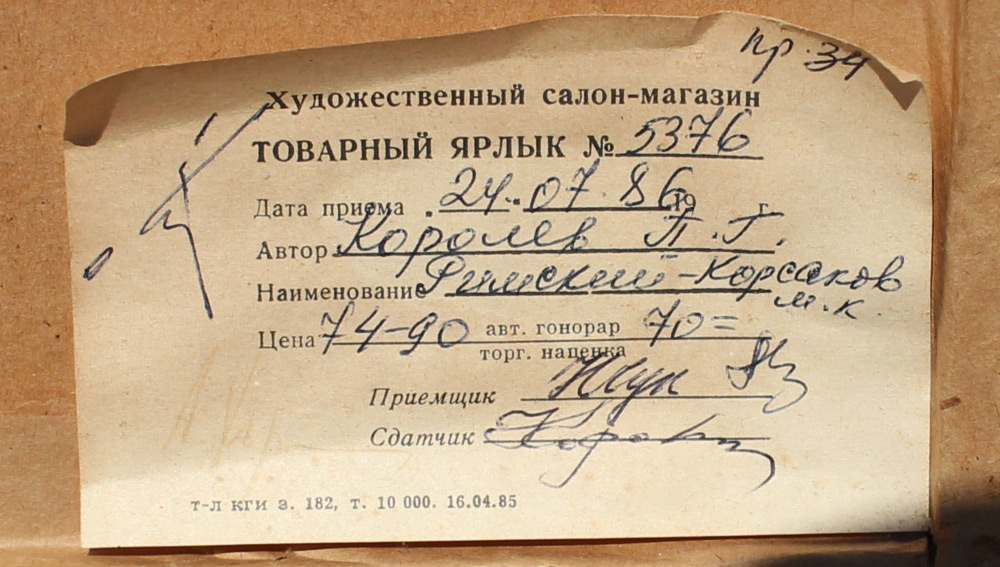 пр. 34
Художественный салон-магазин
ТОВАРНЫЙ ЯРЛЫК № 5376
Дата приема 24.07.86 19 г.
Автор Королев П.Г.
Наименование Римский-Корсаков
м.к.
Цена 74-90 авт. гонорар 70=
торг. наценка
Приемщик
Сдатчик
т-л кги з. 182, т. 10 000. 16.04.85